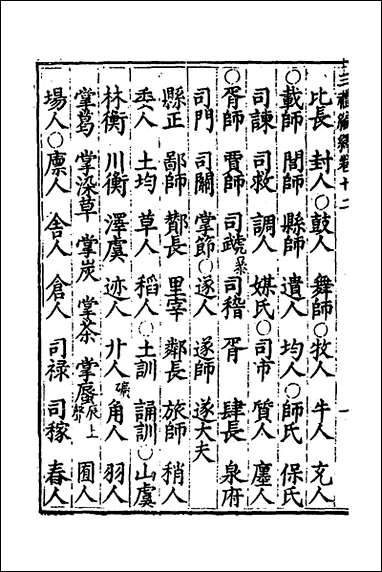 三禮編繹卷十二 一
比長 封人○鼓人 舞師○牧人 牛人 充人
○載師 閭師 縣師 遺人 均人○師氏 保氏
司諫 司救 調人 媒氏○司市 質人 廛人
○胥師 賈師 司虣暴 司稽 胥 肆長 泉府
司門 司關 掌節○遂人 遂師 遂大夫
縣正 鄙師 酇長 里宰 鄰長 旅師 稍人
委人 土均 草人 稻人○土訓 誦訓○山虞
林衡 川衡 澤虞 迹人 廾礦人 角人 羽人
掌葛 掌染草 掌炭 掌荼 掌蜃辰上聲 囿人
場人○廩人 舍人 倉人 司禄 司稼 舂人